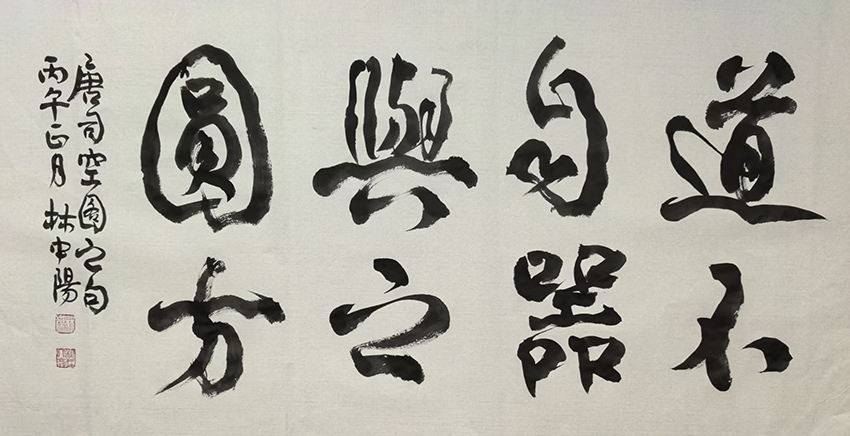 道不
自器
與之
圓方
唐司空圖之句
丙午正月 林中陽